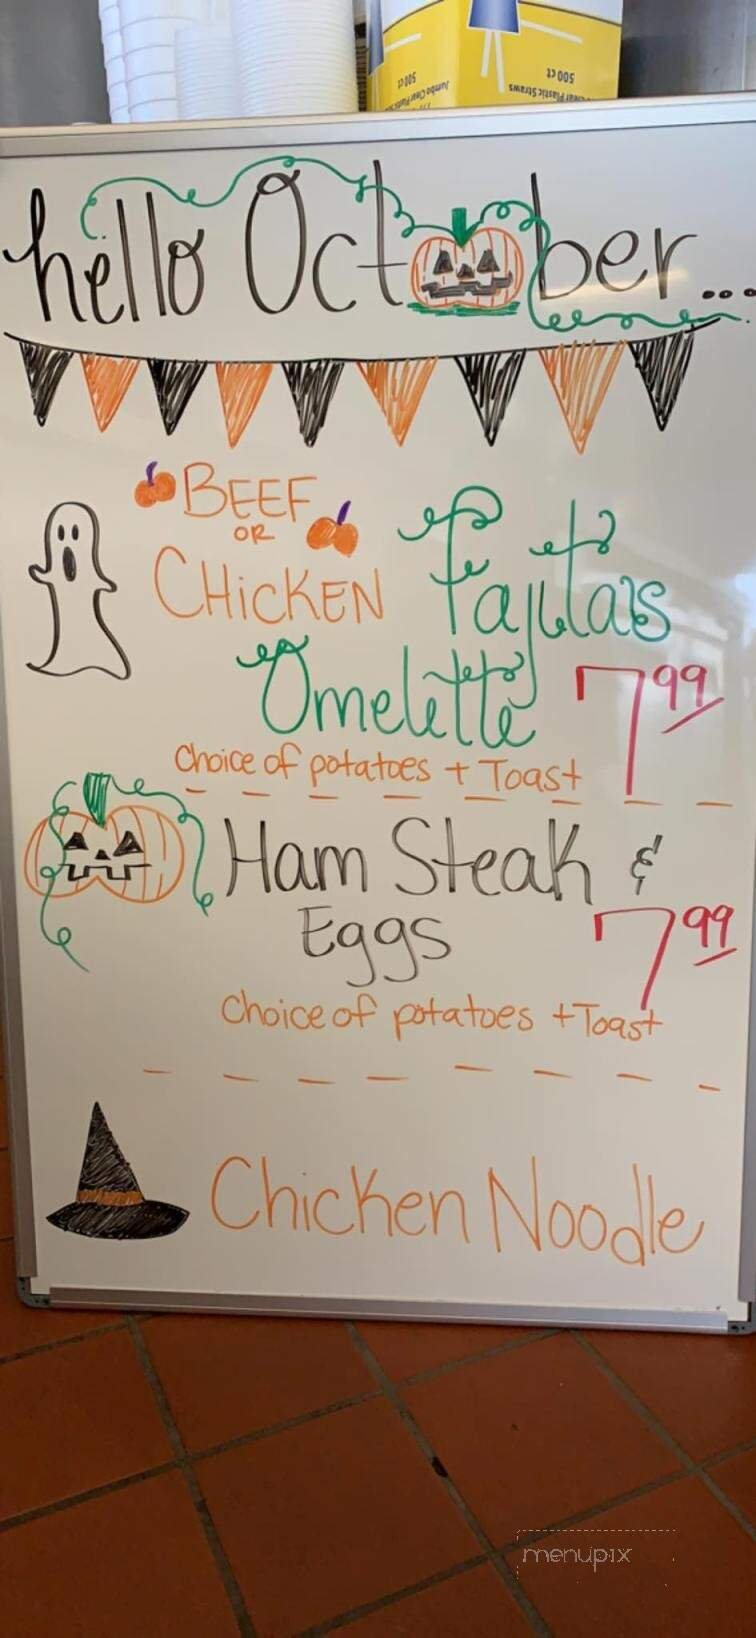 500 ct
Jumbo Clear Plastic Straws
500 ct
hello October...
BEEF
OR
CHICKEN Fajitas
Omelette 7.99
Choice of potatoes + Toast
Ham Steak &
Eggs 7.99
Choice of potatoes + Toast
Chicken Noodle
menupix